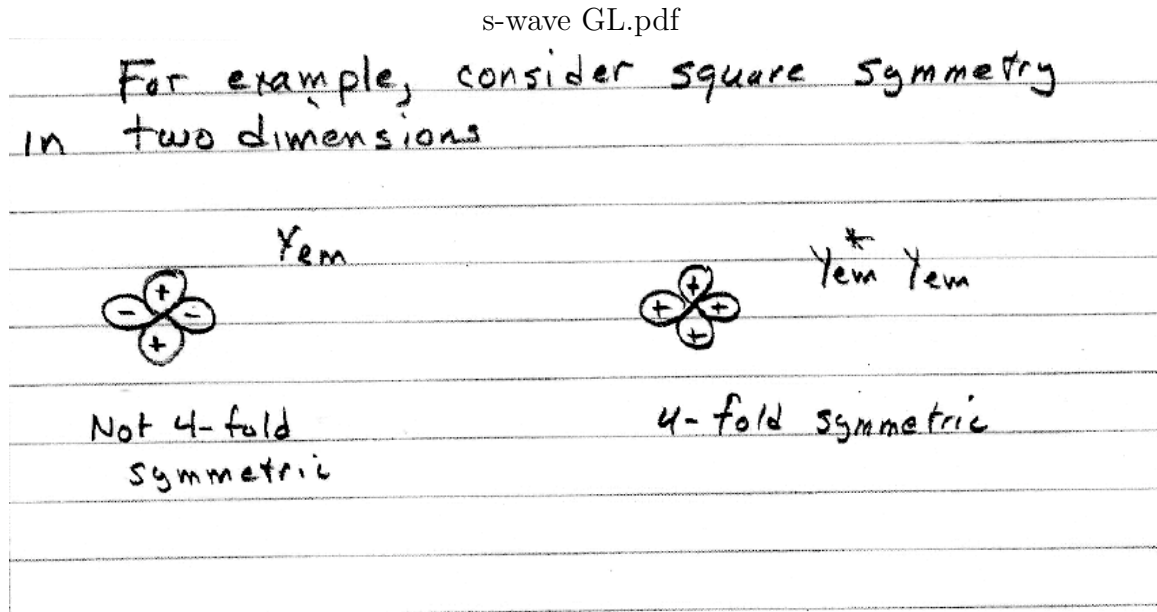 s-wave GL.pdf
For example, consider square symmetry
in two dimensions
Yem
Yem* Yem
+
- -
+
+
+ +
+
Not 4-fold
symmetric
4-fold symmetric